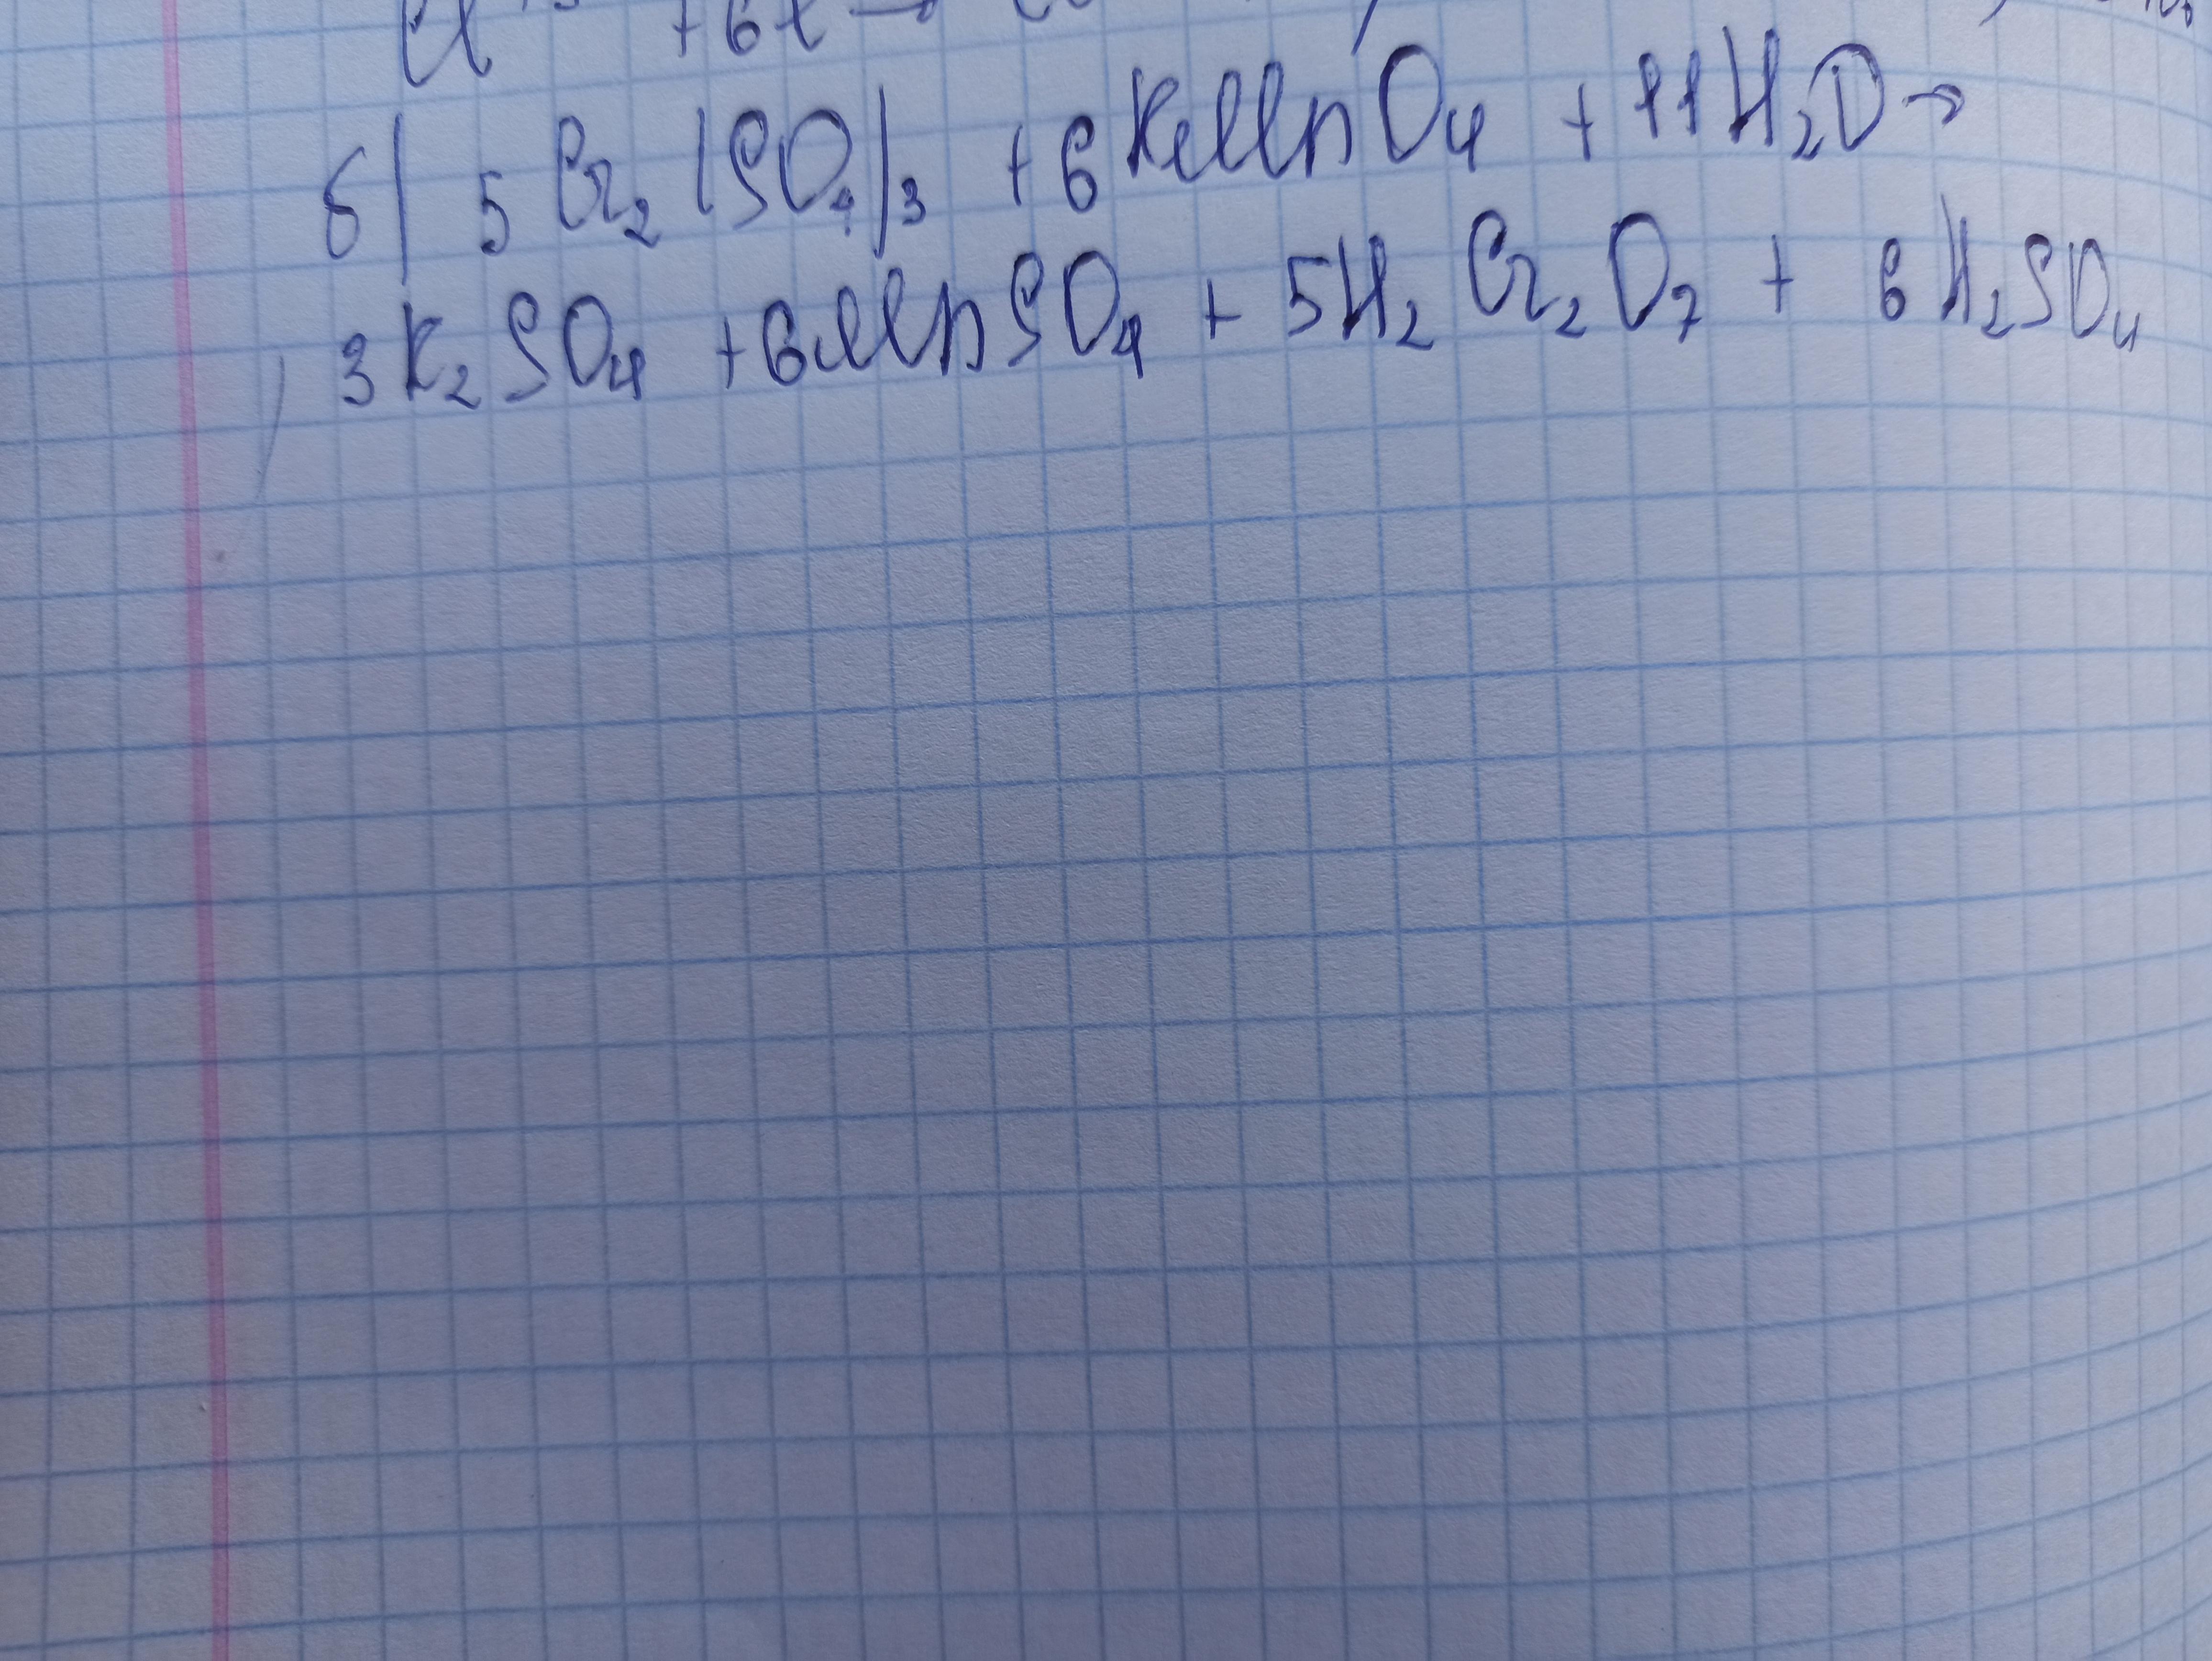 +6e →
б) 5 Cr₂(SO₄)₃ + 6 KMnO₄ + 11 H₂O →
3 K₂SO₄ + 6 MnSO₄ + 5 H₂Cr₂O₇ + 6 H₂SO₄